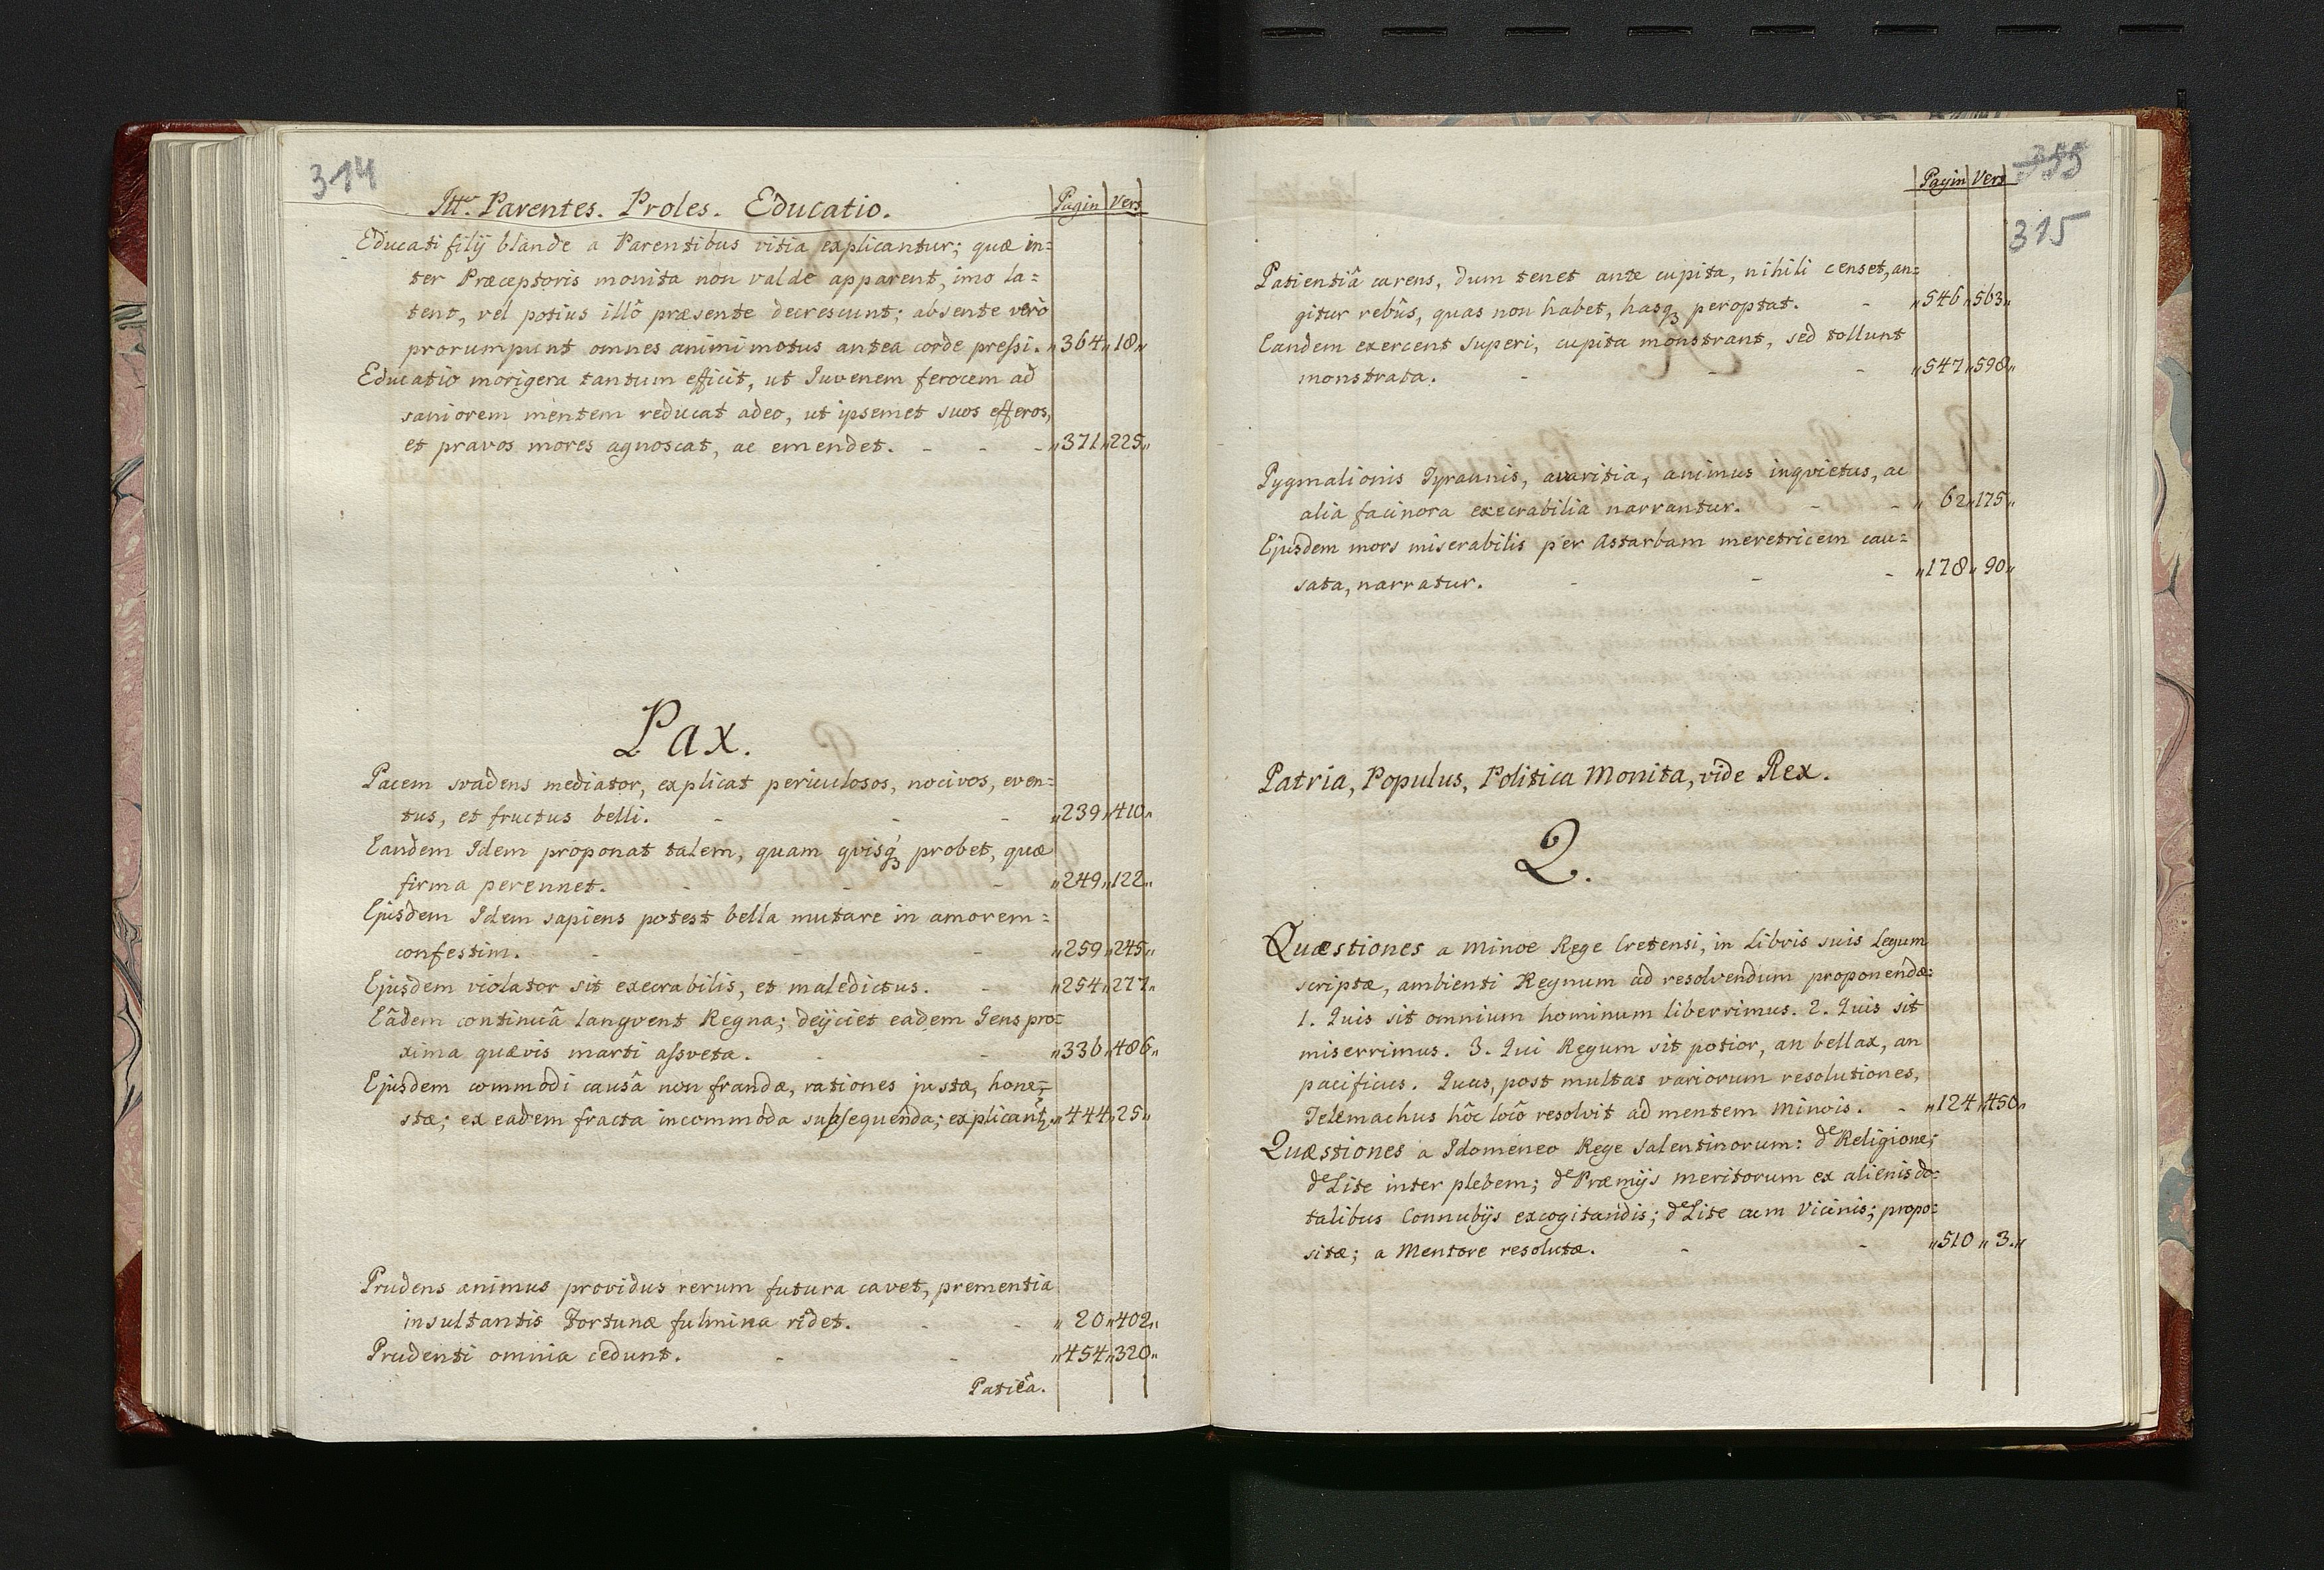 314
Itt. Parentes. Proles. Educatio.
Pagin Vers
Educati filij blande a Parentibus vitia explicantur; quæ in=
ter Præceptoris monita non valde apparent, imo la=
tent, vel potius illô præsente decrescunt; absente verò
prorumpunt omnes animi motus antea corde preſsi. „364„18„
Educatio morigera tantum efficit, ut Iuvenem ferocem ad
saniorem mentem reducat adeo, ut ipsemet suos efferos,
et pravos mores agnoscat, ac emendet. - - - „371„225„
Pax.
Pacem svadens mediator, explicat periculosos, nocivos, even=
tus, et fructus belli. - - - „239„410„
Eandem Idem proponat talem, quam qvisq́ꝫ probet, quæ
firma perennet. - - - „249„122„
Ejusdem Idem sapiens potest bella mutare in amorem=
confestim. - - - „259„245„
Ejusdem violator sit execrabilis, et maledictus. - „254„277„
Eâdem continuâ langvent Regna; deijciet eadem Gens pro=
xima quævis marti aſsveta. - - „336„486„
Ejusdem commodi causâ non frandæ, rationes justæ, hone=
stæ; ex eadem fracta incommoda subſequenda; explicantꝫ. „444„25„
Prudens animus providus rerum futura cavet, prementia
insultantis Fortunæ fulmina ridet. - - „20„402„
Prudenti omnia cedunt. - - „454„320„
Patieâ.
Pagin Vers
315
Patientiâ carens, dum tenet ante cupita, nihili censet, an=
gitur rebûs, quas non habet, hasqꝫ peroptat. - „546„563„
Eandem exercent Superi, cupita monstrant, sed tollunt
monstrata. - - - „547„598„
Pygmalionis Tyrannis, avaritia, animus inqvietus, ac
alia facinora execrabilia narrantur. - - „62„175„
Ejusdem mors miserabilis per Astarbam meretricem cau=
sata, narratur. - - - „178„90„
Patria, Populus, Politica Monita, vide Rex.
Q.
Quæstiones a Minoe Rege Cretensi, in Libris suis Legum
scriptæ, ambienti Regnum ad resolvendum proponendæ:
1. Quis sit omnium hominum liberrimus. 2. Quis sit
miserrimus. 3. Qui Regum sit potior, an bellax, an
pacificus. Quas, post multas variorum resolutiones,
Telemachus hôc locô resolvit ad mentem Minois. - „124„450„
Quæstiones a Idomeneo Rege Salentinorum: de Religione;
de Lite inter plebem; de Præmijs meritorum ex alienis do=
talibus Connubijs excogitandis; de Lite cum Vicinis; propo=
sitæ; a Mentore resolutæ. - - „510„3.„